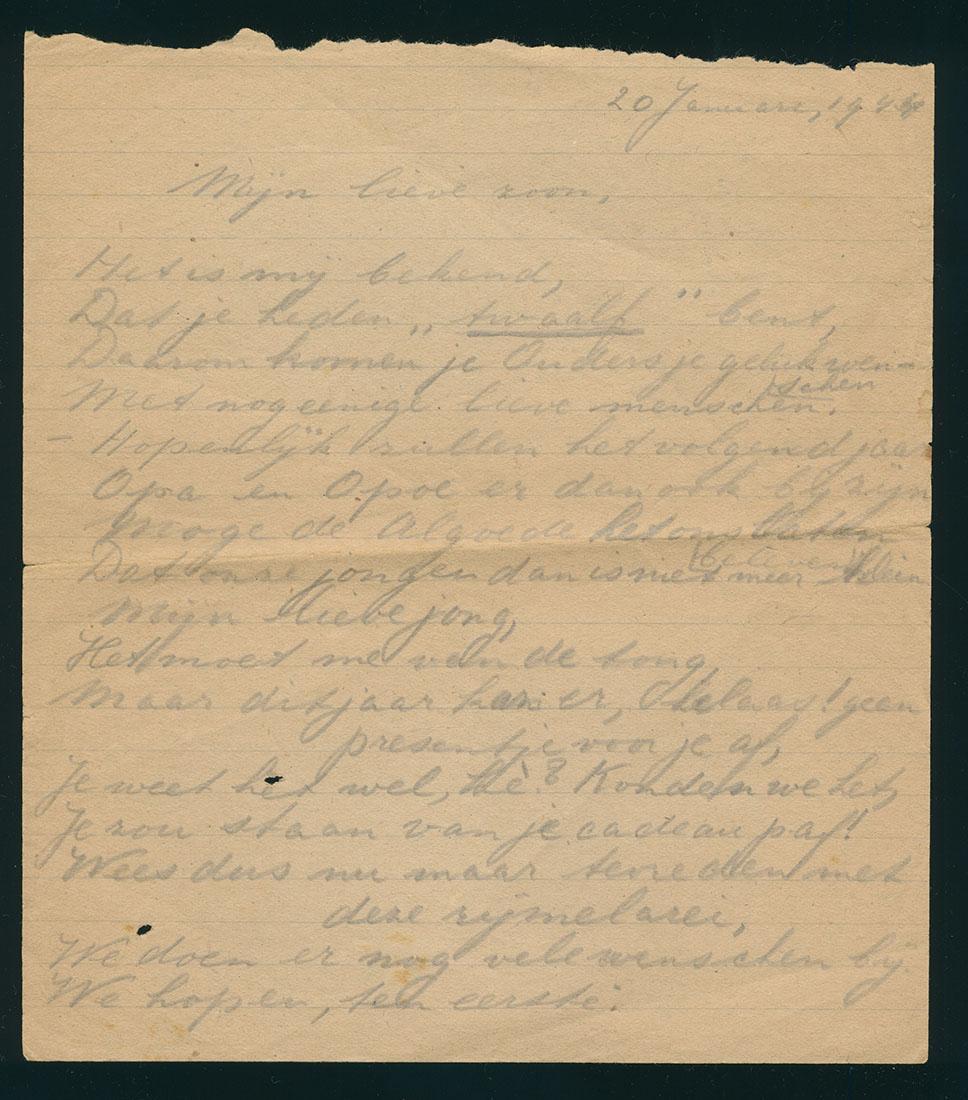 20 Januari, 1944
Mijn lieve zoon,
Het is mij bekend,
Dat je heden „twaalf" bent,
Daarom komen je Ouders je gelukwen-
schen
Met nog eenige lieve menschen.
- Hopenlijk zullen het volgend jaar
Opa en Opoe er dan ook bij zijn
Mooge de Algoede het ons laten
beleven
Dat onze jongen dan is niet meer klein
Mijn lieve jong,
Het moet me van de tong,
Maar dit jaar kan er, Helaas! geen
presentje voor je af,
Je weet het wel, hè? Konden we het,
Je zou staan van je cadeau paf!
Wees dus nu maar tevreden met
deze rijmelarei,
We doen er nog vele wenschen bij.
We hopen, ten eerste: